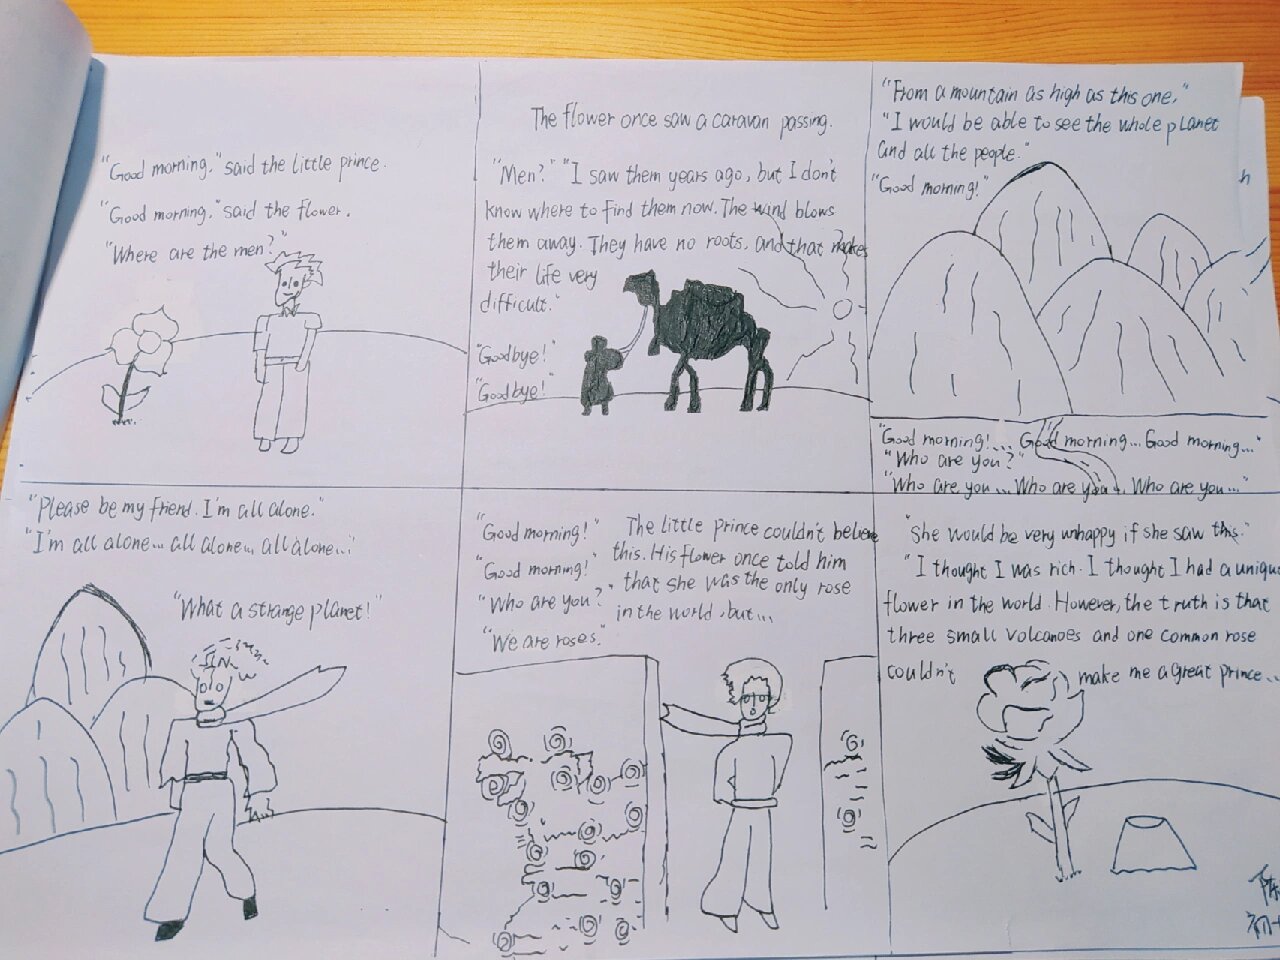 "Good morning," said the little prince.
"Good morning," said the flower.
"Where are the men?"
The flower once saw a caravan passing.
"Men?" "I saw them years ago, but I don't
know where to find them now. The wind blows
them away. They have no roots, and that makes
their life very
difficult."
"Goodbye!"
"Goodbye!"
"From a mountain as high as this one,"
"I would be able to see the whole planet
and all the people."
"Good morning!"
"Good morning!... Good morning... Good morning..."
"Who are you?"
"Who are you... Who are you... Who are you..."
"Please be my friend. I'm all alone."
"I'm all alone... all alone... all alone..."
"What a strange planet!"
"Good morning!"
"Good morning!"
"Who are you?"
"We are roses."
The little prince couldn't believe
this. His flower once told him
that she was the only rose
in the world, but...
"She would be very unhappy if she saw this."
"I thought I was rich. I thought I had a unique
flower in the world. However, the truth is that
three small volcanoes and one common rose
couldn't make me a great prince...